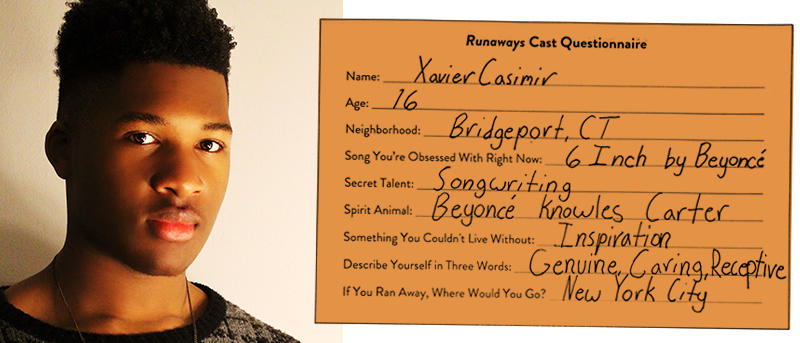 Runaways Cast Questionnaire
Name: Xavier Casimir
Age: 16
Neighborhood: Bridgeport, CT
Song You're Obsessed With Right Now: 6 Inch by Beyoncé
Secret Talent: Songwriting
Spirit Animal: Beyoncé Knowles Carter
Something You Couldn't Live Without: Inspiration
Describe Yourself in Three Words: Genuine, Caring, Receptive
If You Ran Away, Where Would You Go? New York City